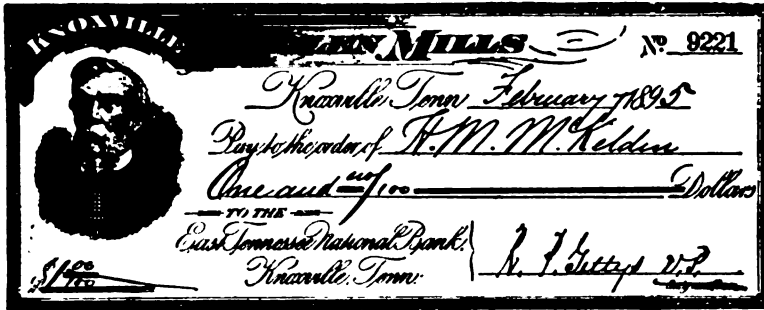 KNOXVILLE MILLS
No. 9221
Knoxville, Tenn. February 7 1895
Pay to the order of H. M. McKeldin
One and no/100 Dollars
TO THE
East Tennessee National Bank,
Knoxville, Tenn.
$1 00/100
V.P.